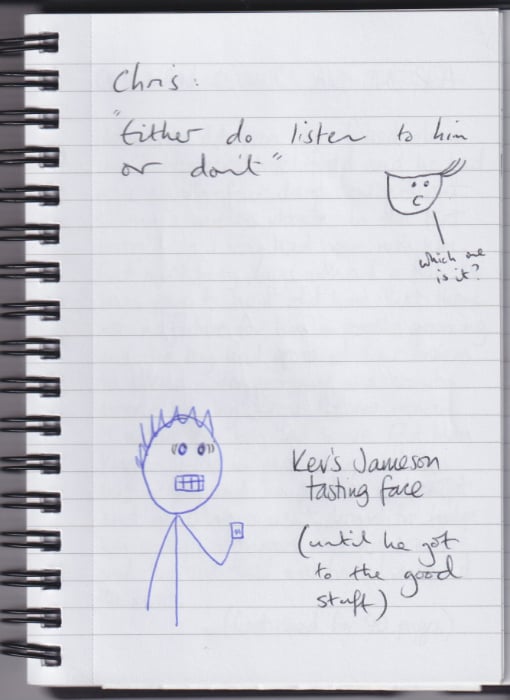 Chris:
"Either do listen to him
or don't"
which one
is it?
Kev's Jameson
tasting face
(until he got
to the good
stuff)